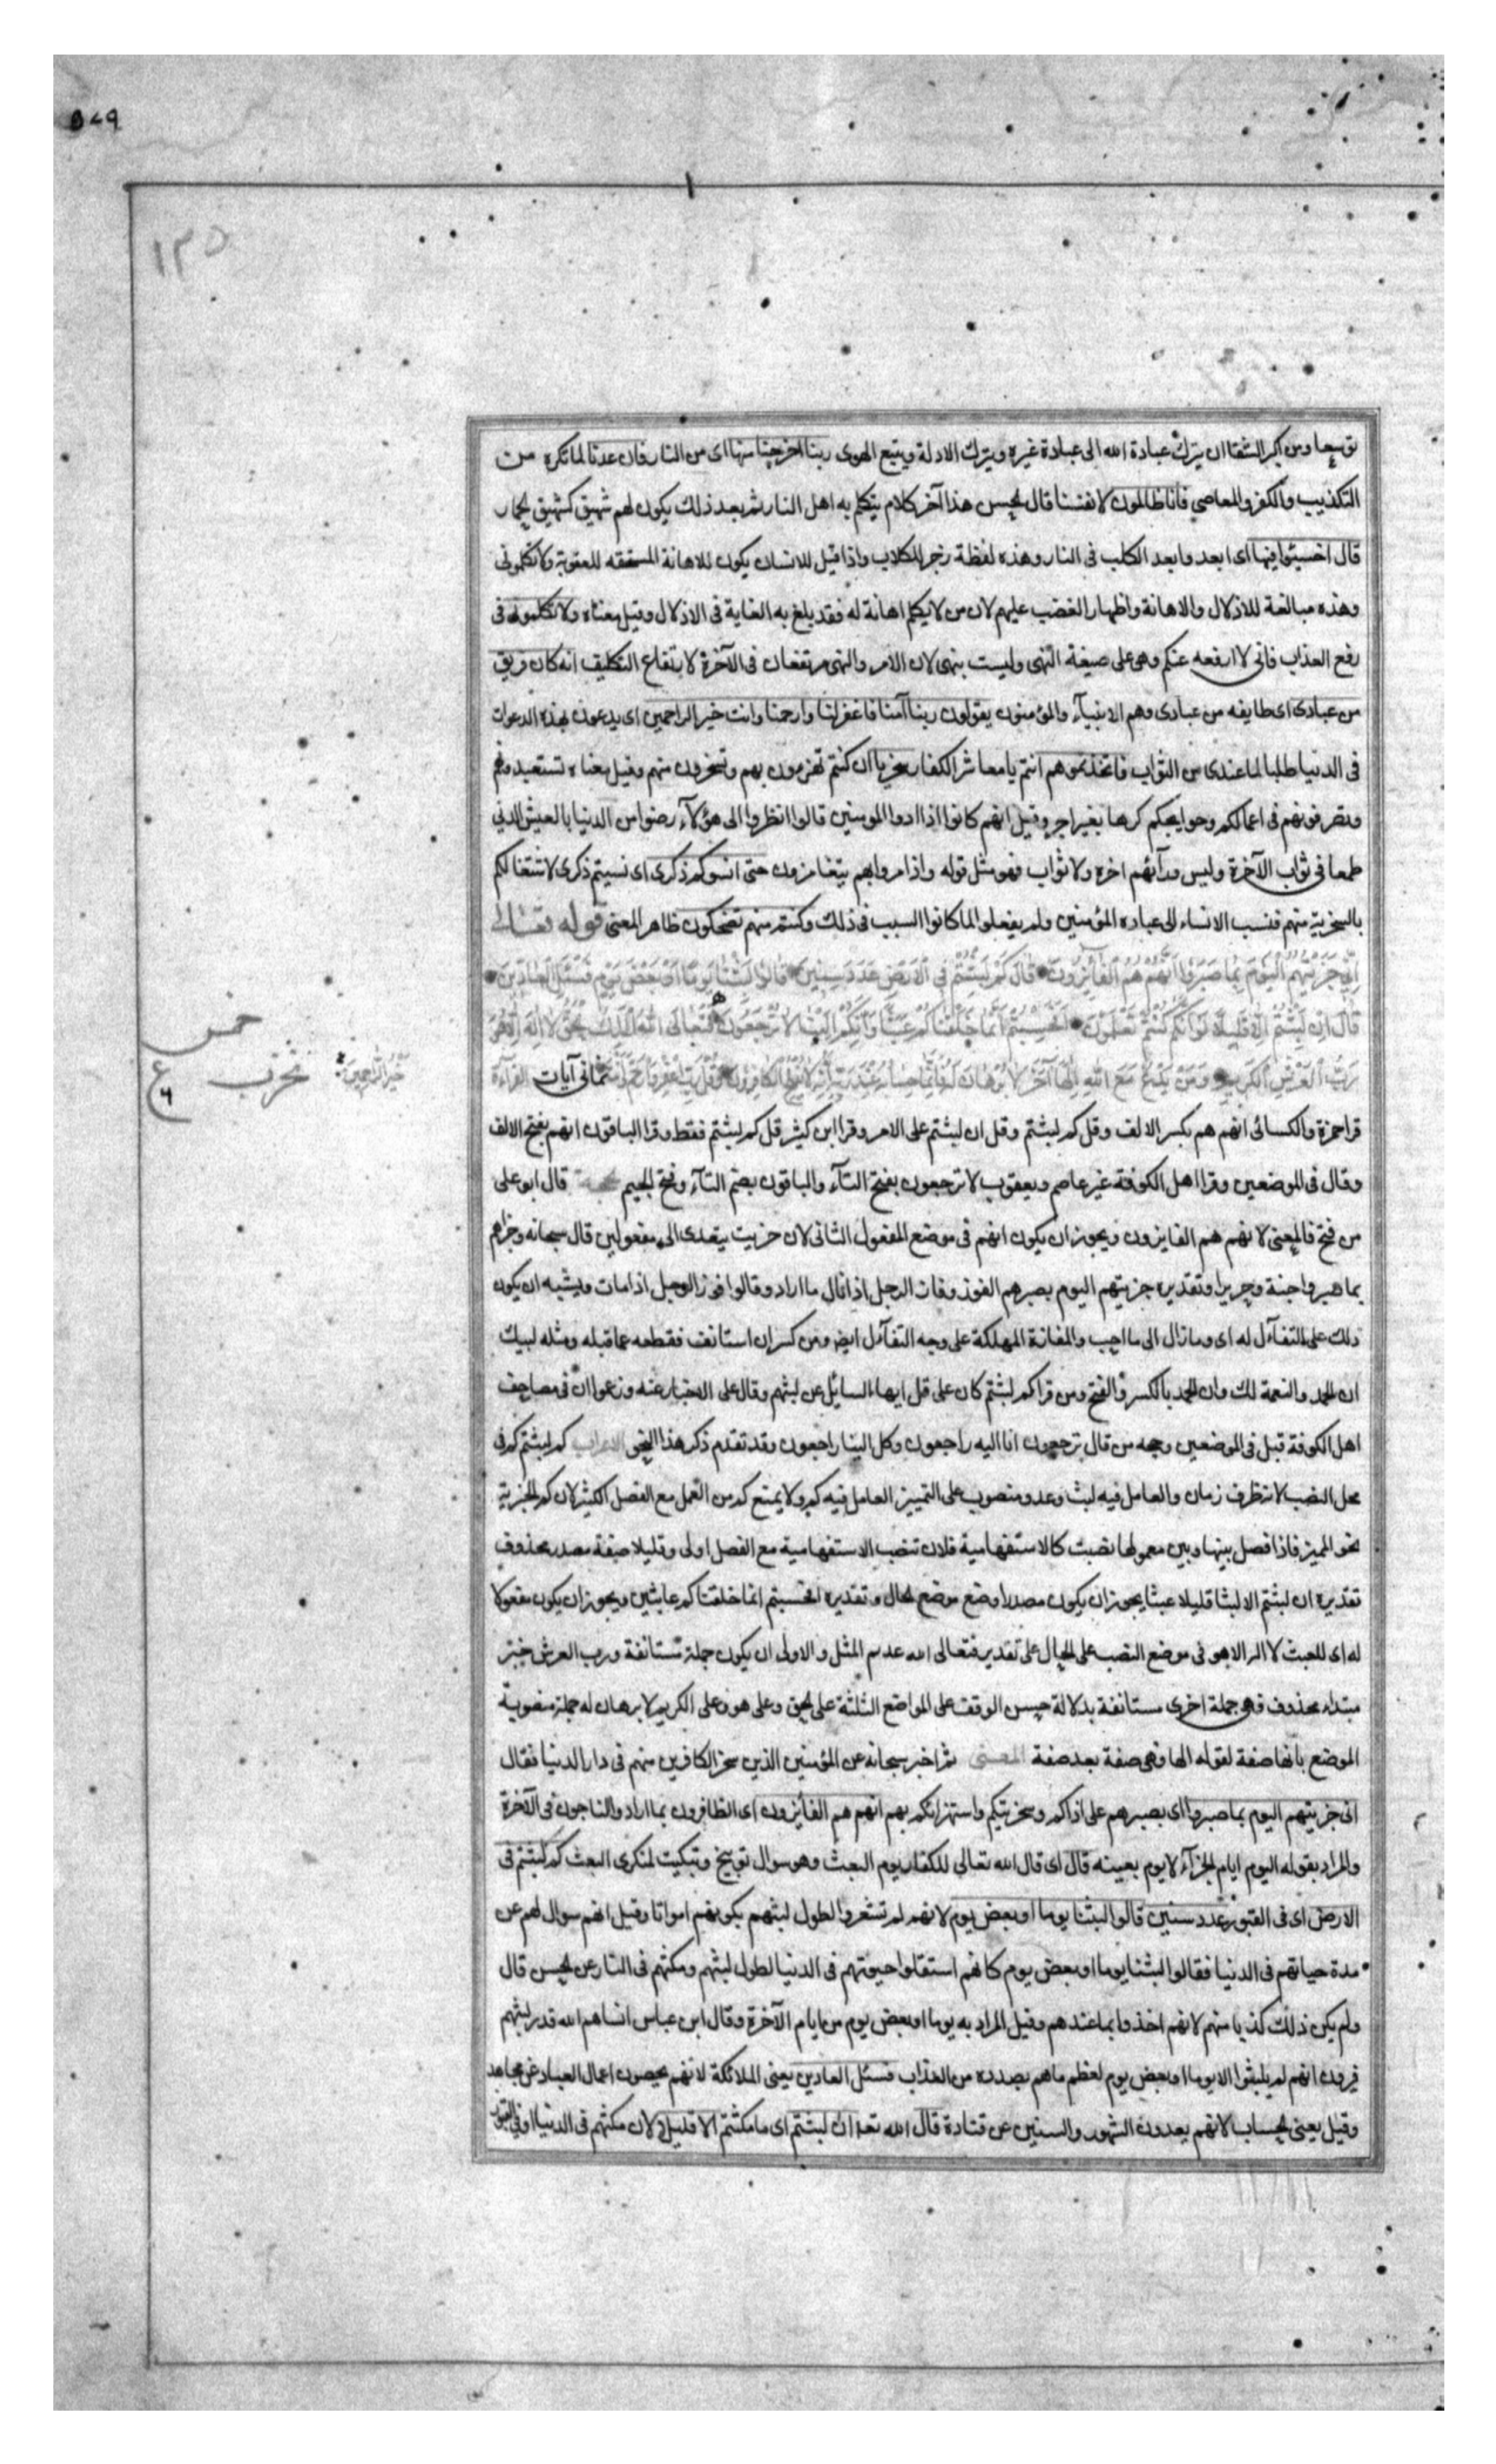 ٥٧٩
١٣٥
توسعا ومن اكبر الشقا ان يترك عبادة الله الى عبادة غيره ويترك الادلة ويتبع الهوى ربنا اخرجنا منها اى من النار فان عدنا لما تكره من
التكذيب والكفر والمعاصي فانا ظالمون لانفسنا قال الحسن هذا آخر كلام يتكلم به اهل النار ثم بعد ذلك يكون لهم شهيق كشهيق الحمار
قال اخسئوا فيها اى ابعدوا بعد الكلب فى النار وهذه لفظة زجر للكلاب واذا قيل للانسان يكون للاهانة المستحقه للعقوبة ولا تكلمونى
وهذه مبالغة للاذلال والاهانة واظهار الغضب عليهم لان من لا يكلم اهانة له فقد بلغ به الغاية فى الاذلال وقيل معناه ولا تكلمونى فى
رفع العذاب فانى لا ارفعه عنكم وهى على صيغة النهى وليست بنهى لان الامر والنهى مرتفعان فى الآخرة لارتفاع التكليف انه كان فريق
من عبادى اى طايفه من عبادى وهم الانبيآء والمؤمنون يقولون ربنا آمنا فاغفر لنا وارحمنا وانت خير الراحمين اى يدعون بهذه الدعوات
فى الدنيا طلبا لما عندى من الثواب فاتخذتموهم انتم يا معاشر الكفار سخريا اى كنتم تهزءون بهم وتسخرون منهم وقيل معناه تستعبدونهم
وتصرفونهم فى اعمالكم وحوايجكم كرها بغير اجر وقيل انهم كانوا اذا اذوا المومنين قالوا انظروا الى هؤلآء رضوا من الدنيا بالعيش الدنى
طمعا فى ثواب الآخرة وليس ورآئهم اخره ولا ثواب فهو مثل قوله واذا مروا بهم يتغامزون حتى انسوكم ذكرى اى نسيتم ذكرى لاشتغالكم
بالسخرية منهم فنسب الانساء الى عباده المؤمنين ولم يفعلوا لما كانوا السبب فى ذلك وكنتم منهم تضحكون ظاهر المعنى قوله تعالى
اِنِّى جَزَيْتُهُمُ الْيَوْمَ بِما صَبَرُوا اَنَّهُمْ هُمُ الْفائِزُونَ قالَ كَمْ لَبِثْتُمْ فِى الْاَرْضِ عَدَدَ سِنِينَ قالُوا لَبِثْنا يَوْمًا اَوْ بَعْضَ يَوْمٍ فَسْئَلِ الْعادِّينَ
قالَ اِنْ لَبِثْتُمْ اِلّا قَلِيلًا لَوْ اَنَّكُمْ كُنْتُمْ تَعْلَمُونَ اَفَحَسِبْتُمْ اَنَّما خَلَقْناكُمْ عَبَثًا وَاَنَّكُمْ اِلَيْنا لا تُرْجَعُونَ فَتَعالَى اللهُ الْمَلِكُ الْحَقُّ لا اِلهَ اِلّا هُوَ
رَبُّ الْعَرْشِ الْكَرِيمِ وَمَنْ يَدْعُ مَعَ اللهِ اِلهًا آخَرَ لا بُرْهانَ لَهُ بِهِ فَاِنَّما حِسابُهُ عِنْدَ رَبِّهِ اِنَّهُ لا يُفْلِحُ الْكافِرُونَ وَقُلْ رَبِّ اغْفِرْ وَارْحَمْ وَاَنْتَ ثمانى آيات القراءة
خَيْرُ الرّاحِمِينَ
خمس
تحزب
ع
٦
قرا حمزة والكسائى انهم هم بكسر الالف وقل كم لبثتم وقل ان لبثتم على الامر وقرا ابن كثير قل كم لبثتم فقط وقرا الباقون انهم بفتح الالف
وقال فى الموضعين وقرا اهل الكوفة غير عاصم ويعقوب لا ترجعون بفتح التآء والباقون بضم التآء وفتح الجيم قال ابو على
من فتح فالمعنى لانهم هم الفايزون ويجوز ان يكون انهم فى موضع المفعول الثانى لان جزيت يتعدى الى مفعولين قال سبحانه وجزاهم
بما صبروا جنة وحريرا وتقديره جزيتهم اليوم بصبرهم الفوز وفاز الرجل اذا نال ما اراد وقالوا فوز الرجل اذا مات ويشبه ان يكون
ذلك على التفآءل له اى وما زال الى ما احب والمفازة المهلكة على وجه التفآءل ايض ومن كسر ان استانف فقطعه عما قبله ومثله لبيك
ان الحمد والنعمة لك وان الحمد بالكسر والفتح ومن قرا كم لبثتم كان على قل ايها السايل عن لبثهم وقال على الاخبار عنه وزعموا ان فى مصاحف
اهل الكوفة قيل فى الموضعين وجه من قال ترجعون انا اليه راجعون وكل الينا راجعون وقد تقدم ذكر هذا النحو الاعراب كم لبثتم كم فى
محل النصب لانه ظرف زمان والعامل فيه لبث وعدد منصوب على التمييز العامل فيه كم ولا يمتنع كم من العمل مع الفصل الكثير لان كم الخبرية
نحو المميز فاذا فصل بينها وبين معمولها نصبت كالاستفهامية فلان تنصب الاستفهامية مع الفصل اولى وقليلا صفة مصدر محذوف
تقديره ان لبثتم الا لبثا قليلا عبثا يجوز ان يكون مصدرا وضع موضع الحال وتقديره افحسبتم انما خلقناكم عابثين ويجوز ان يكون مفعولا
له اى للعبث لا اله الا هو فى موضع النصب على الحال على تقدير فتعالى الله عدم المثل والاولى ان يكون جملة مستانفة ورب العرش خبر
مبتداء محذوف فهى جملة اخرى مستانفة بدلالة حسن الوقف على المواضع الثلثة على الحق وعلى هو وعلى الكريم لا برهان له جملة منصوبة
الموضع بانها صفة لقوله الها فهى صفة بعد صفة المعنى ثم اخبر سبحانه عن المؤمنين الذين سخر الكافرين منهم فى دار الدنيا فقال
انى جزيتهم اليوم بما صبروا اى بصبرهم على اذاكم وسخريتكم واستهزائكم بهم انهم هم الفآئزون اى الظافرون بما اراد والناجون فى الآخرة
والمراد بقوله اليوم ايام الجزآء لا يوم بعينه قال اى قال الله تعالى للكفار يوم البعث وهو سوال توبيخ وتبكيت لمنكرى البعث كم لبثتم فى
الارض اى فى القبور عدد سنين قالوا لبثنا يوما او بعض يوم لانهم لم تشعروا لطول لبثهم بكونهم امواتا وقيل انهم سوال لهم عن
مدة حياتهم فى الدنيا فقالوا لبثنا يوما او بعض يوم كانهم استقلوا حيوتهم فى الدنيا لطول لبثهم ومكثهم فى النار عن الحسن قال
ولم يكن ذلك كذبا منهم لانهم اخذوا بما عندهم وقيل المراد به يوما او بعض يوم من ايام الآخرة وقال ابن عباس انساهم الله قدر لبثهم
فيرون انهم لم يلبثوا الا يوما او بعض يوم لعظم ما هم بصدده من العذاب فسئل العادين يعنى الملائكة لانهم يحصون اعمال العباد عن مجاهد
وقيل يعنى الحساب لانهم يعدون الشهور والسنين عن قتادة قال الله تعا ان لبثتم اى ما مكثتم الا قليلا لان مكثهم فى الدنيا او فى القبور